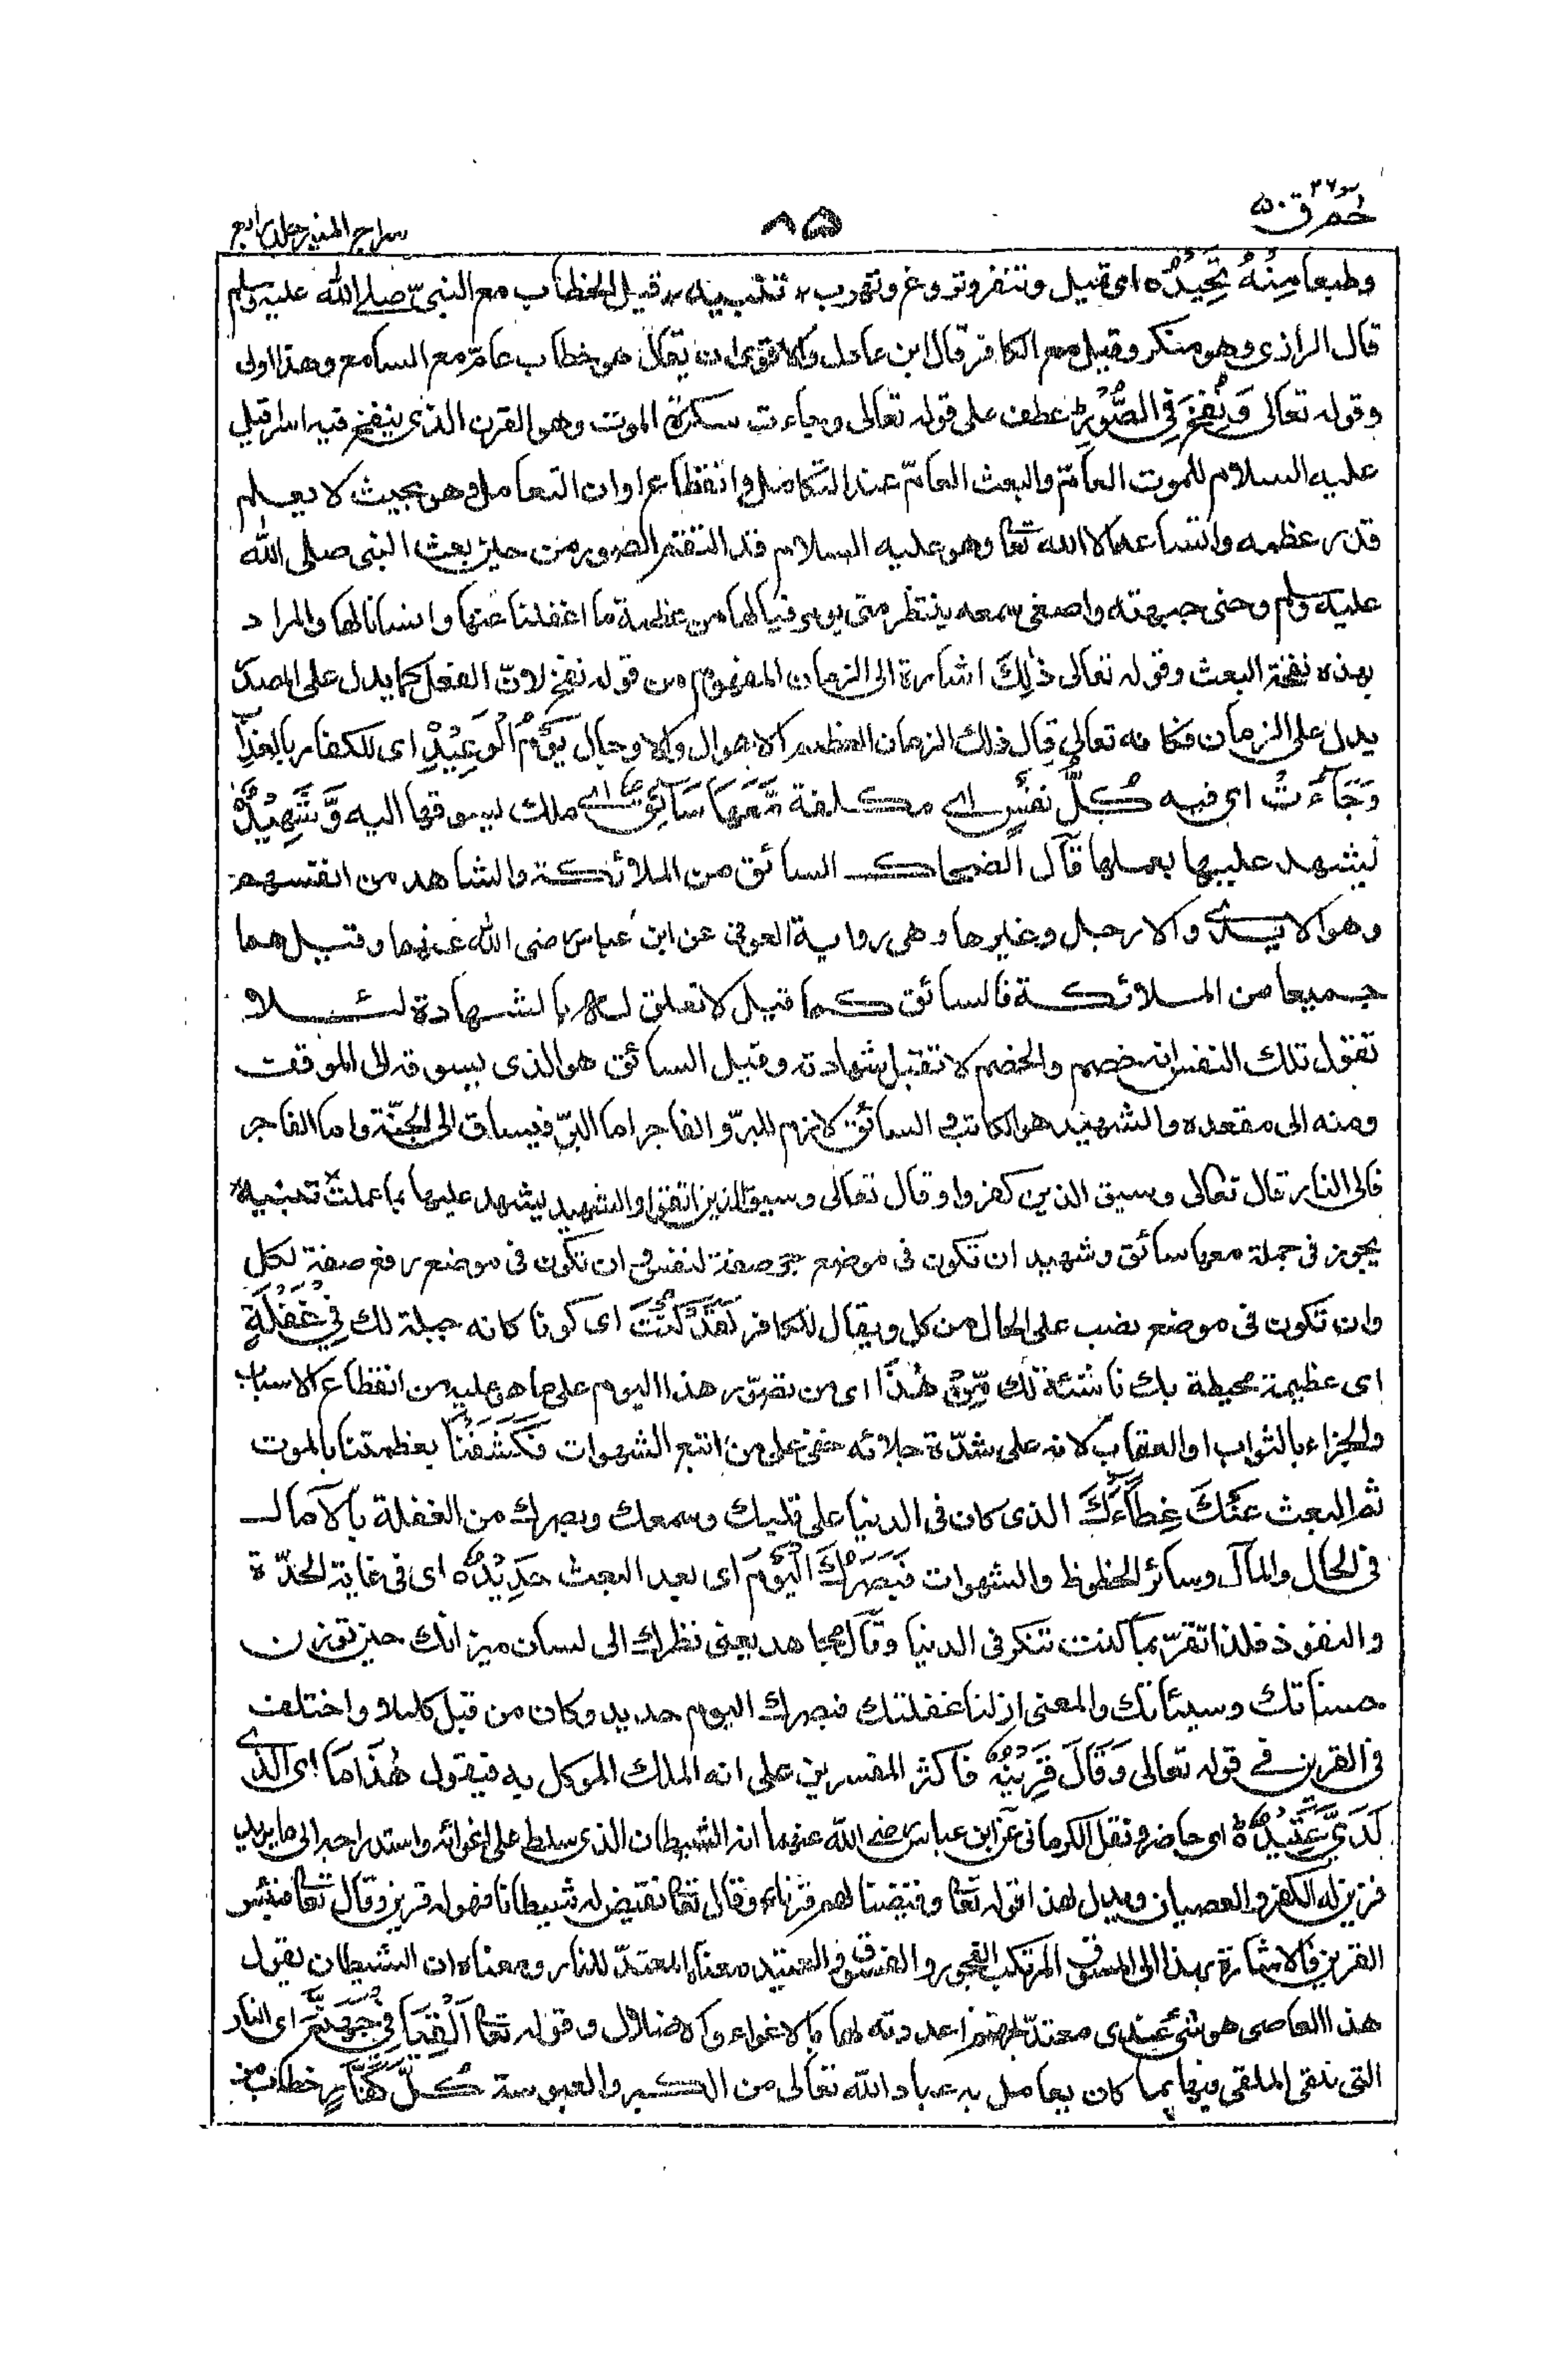 حٰم ٢٦ ق ٥٠
٨٥
سراج المنير جلد رابع
وطبعا مِنْهُ تَحِيْدُ ه اى تميل وتنفر وتروغ وتهرب * تنبيه * قيل الخطاب مع النبىّ صلى الله عليه وسلم
قال الرازى وهو منكر وقيل مع الكافر قال ابن عادل والاقوى ان يقال هو خطاب عامّ مع السامع وهذا اولى
وقوله تعالى وَنُفِخَ فِى الصُّوْرِ عطف على قوله تعالى وجاءت سكرة الموت وهو القرن الذى ينفخ فيه اسرافيل
عليه السلام للموت العامّ والبعث العامّ عند التكامل وانقطاع اوان التعامل وهو بحيث لا يعلم
قدر عظمه واتساعه الا الله تعا وهو عليه السلام قد التقم الصور من حين بعث النبى صلى الله
عليه وسلم وحنى جبهته واصغى سمعه ينتظر متى يومر فيا لها من عظمة ما اغفلنا عنها وانسانا لها والمراد
بهذه نفخة البعث وقوله تعالى ذٰلِكَ اشارة الى الزمان المفهوم من قوله نفخ لانّ الفعل كما يدل على المصدر
يدل على الزمان فكانه تعالى قال ذلك الزمان العظيم الاهوال والاوجال يَوْمُ الْوَعِيْدِ اى للكفار بالعذاب
وَجَآءَتْ اى فيه كُلُّ نَفْسٍ اى مكلفة مَّعَهَا سَآئِقٌ اى ملك يسوقها اليه وَّشَهِيْدٌ
يشهد عليها بعملها قال الضحاك السائق من الملائكة والشاهد من انفسهم
وهو الايدى والارجل وغيرها وهى رواية العوفى عن ابن عباس رضى الله عنهما وقيل هما
جميعا من الملائكة فالسائق كما قيل لا تعلق له بالشهادة لئلا
تقول تلك النفس انه خصم والخصم لا تقبل شهادته وقيل السائق هو الذى يسوقه الى الموقف
ومنه الى مقعده والشهيد هو الكاتب والسائق لازم للبرّ والفاجر اما البرّ فيساق الى الجنّة واما الفاجر
فالى النار قال تعالى وسيق الذين كفروا وقال تعالى وسيق الذين اتقوا والشهيد يشهد عليها بما عملت * تنبيه *
يجوز فى جملة معها سائق وشهيد ان تكون فى موضع جرّ صفة لنفس وان تكون فى موضع رفع صفة لكل
وان تكون فى موضع نصب على الحال من كل ويقال للكافر لَقَدْ كُنْتَ اى كونا كانه جبلة لك فِىْ غَفْلَةٍ
اى عظيمة محيطة بك ناشئة لك مِّنْ هٰذَا اى من تصوّر هذا اليوم على ما هو عليه من انقطاع الاسباب
والجزاء بالثواب او العقاب لانه على شدّة جلائه خفى على من اتبع الشهوات فَكَشَفْنَا بعظمتنا بالموت
ثم البعث عَنْكَ غِطَآءَكَ الذى كان فى الدنيا على قلبك وسمعك وبصرك من الغفلة بالآمال
فى الحال والمآل وسائر الحظوظ والشهوات فَبَصَرُكَ الْيَوْمَ اى بعد البعث حَدِيْدٌ ه اى فى غاية الحدّة
والنفوذ فلذا تقرّ بما كنت تنكر فى الدنيا وقال مجاهد يعنى نظرك الى لسان ميزانك حين توزن
حسناتك وسيئاتك والمعنى ازلنا غفلتك فبصرك اليوم حديد وكان من قبل كليلا واختلف
فى القرين فى قوله تعالى وَقَالَ قَرِيْنُهٗ فاكثر المفسرين على انه الملك الموكل به فيقول هٰذَا مَا اى الذى
لَدَىَّ عَتِيْدٌ ه اى حاضر ونقل الكرمانى عن ابن عباس رضى الله عنهما انه الشيطان الذى سلط على اغوائه واستدراجه الى ما يريد
فزين له الكفر والعصيان ويدل لهذا قوله تعا وقيضنا لهم قرناء وقال تعا نقيض له شيطانا فهو له قرين وقال تعا فبئس
القرين فالاشارة بهذا الى المسوق المرتكب الفجور والفسوق والعتيد معناه المعتدّ للنار ومعناه ان الشيطان يقول
هذا العاصى هو شئ عندى معتدّ لجهنم اعددته لها بالاغواء والاضلال وقوله تعا اَلْقِيَا فِىْ جَهَنَّمَ اى النار
التى تلقى الملقى فيها بما كان يعامل به عباد الله تعالى من الكبر والعبوسة كُلَّ كَفَّارٍ خطاب من